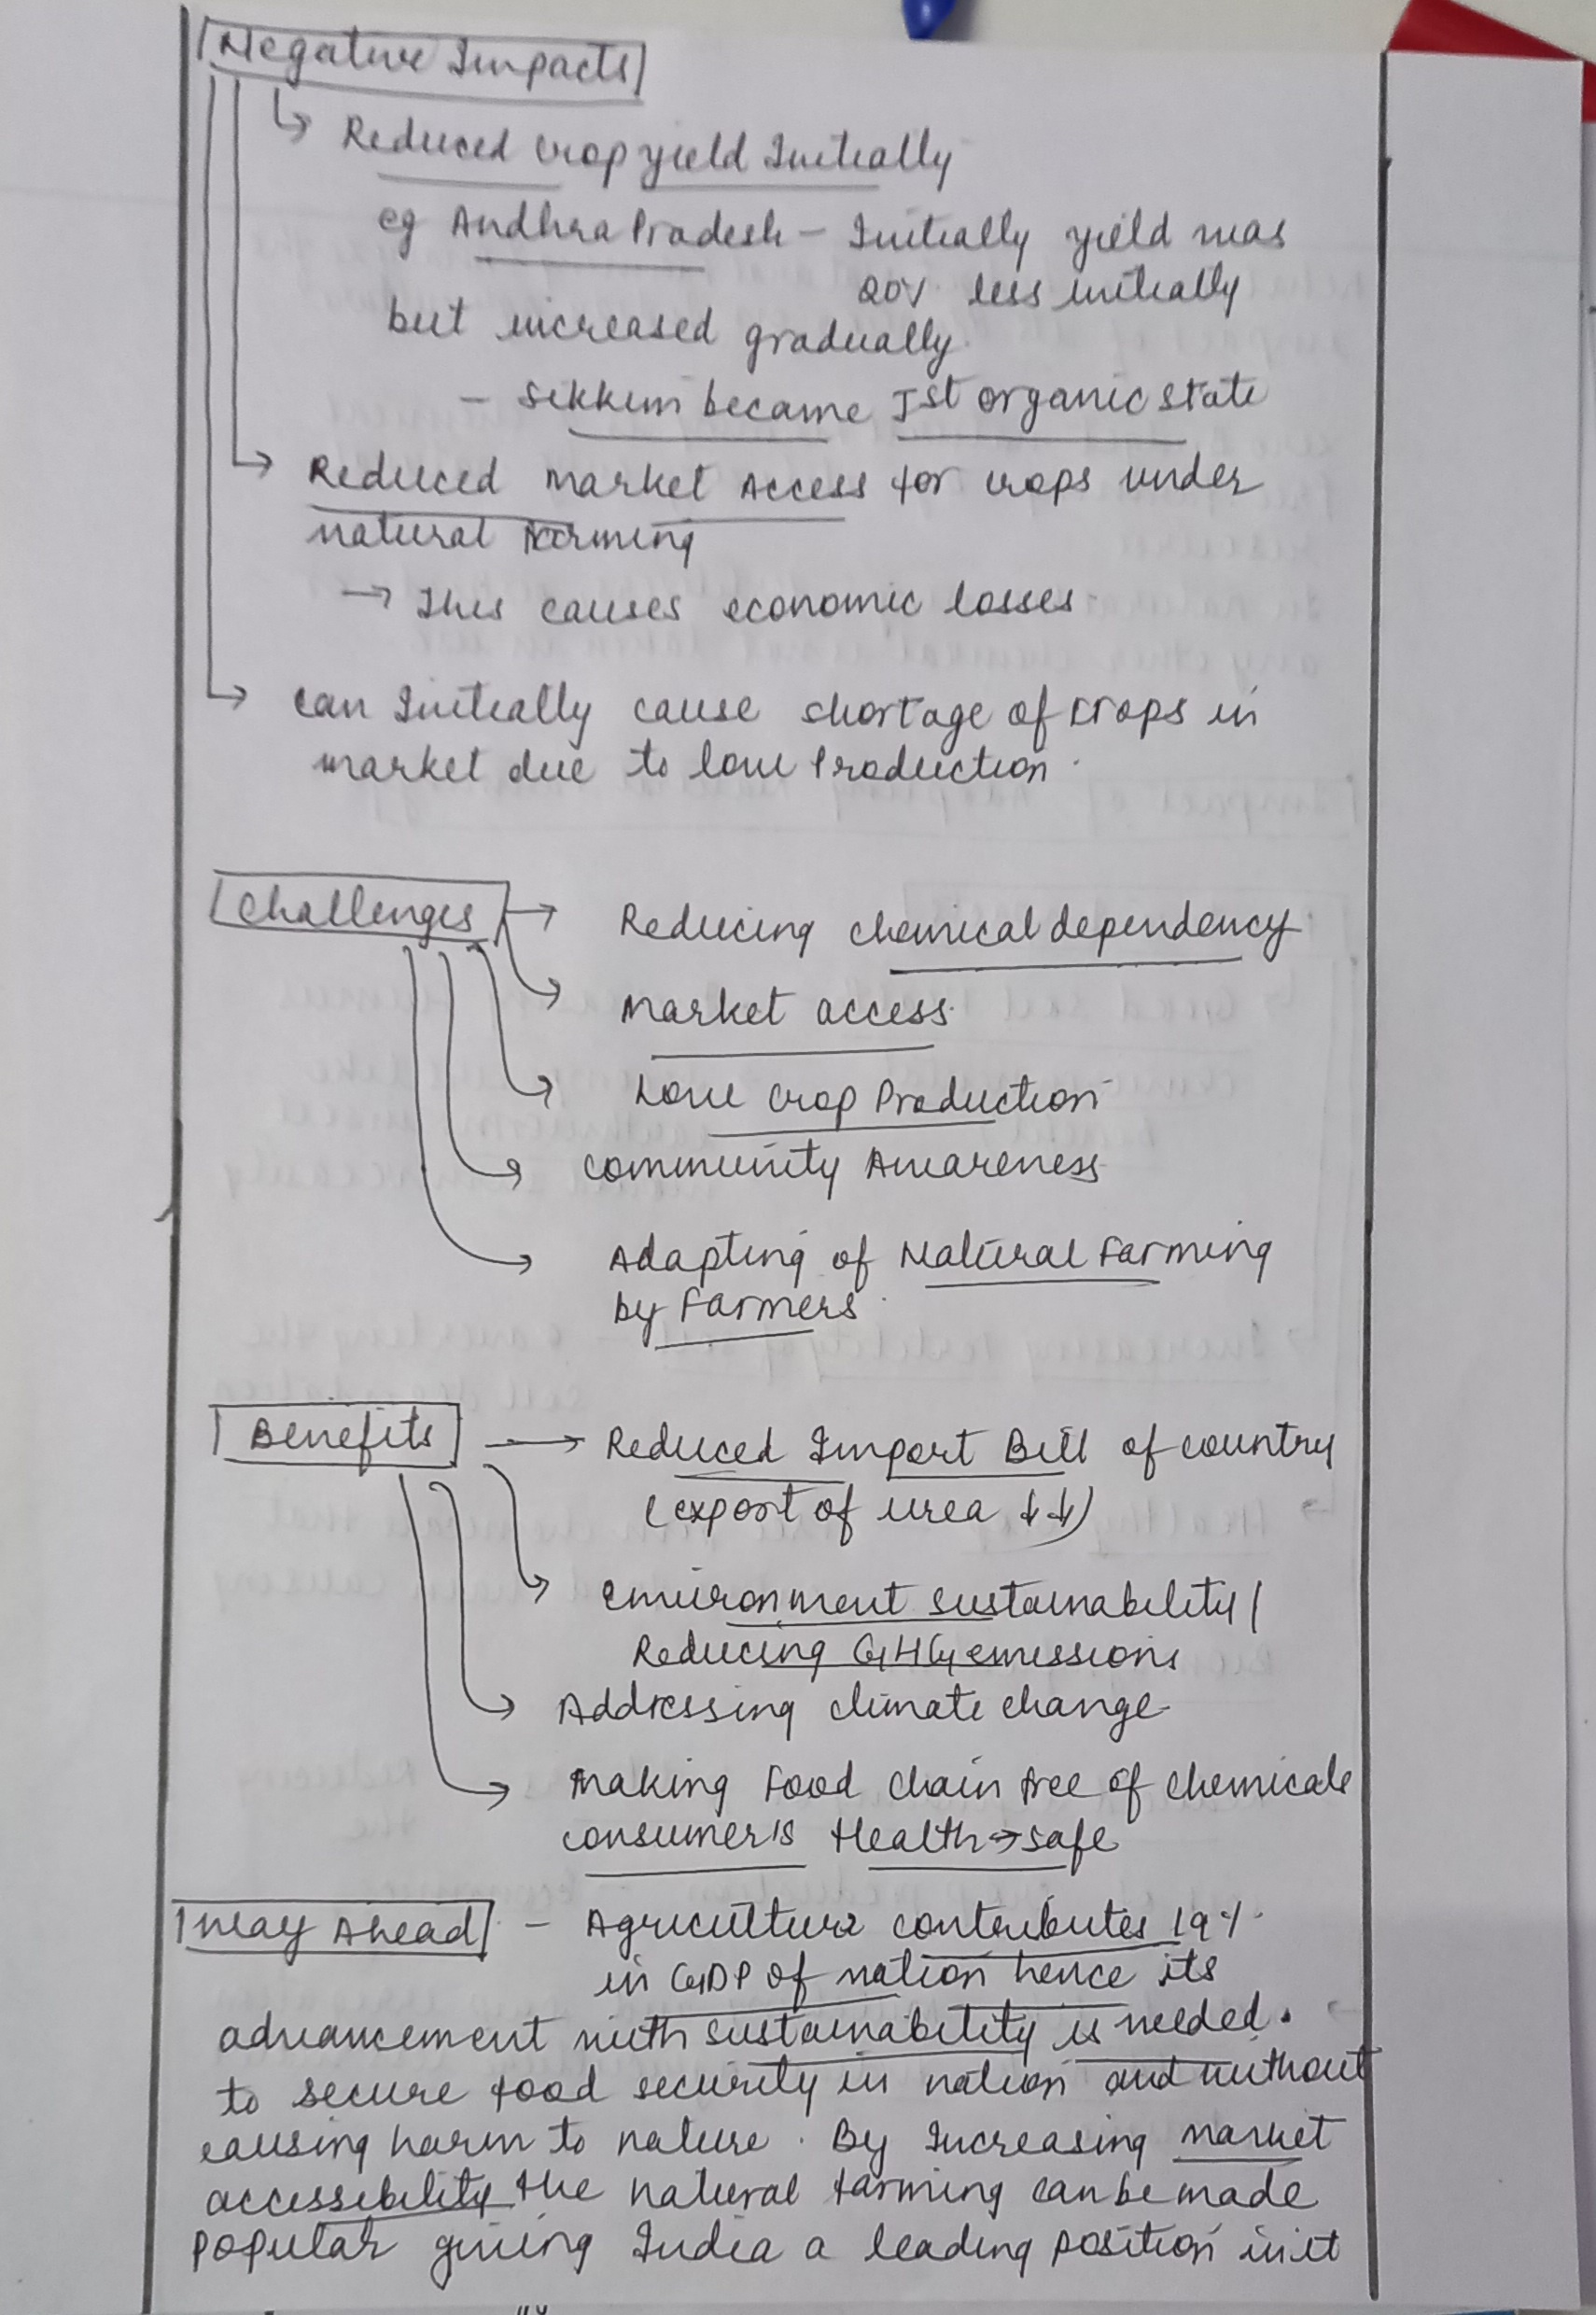 Negative Impacts
Reduced crop yield Initially
eg Andhra Pradesh – Initially yield was
20% less initially
but increased gradually.
– Sikkim became Ist organic state
Reduced Market Access for crops under
natural farming
→ This causes economic losses.
can Initially cause shortage of crops in
market due to low Production.
Challenges → Reducing chemical dependency
Market access.
Low crop Production
Community Awareness
Adapting of Natural Farming
by Farmers.
Benefits → Reduced Import Bill of country
(export of urea ↓↓)
environment sustainability /
Reducing GHG emissions
Addressing climate change
Making Food chain free of chemicals
consumer's Health → safe
Way Ahead – Agriculture contributes 19%
in GDP of nation hence its
advancement with sustainability is needed.
to secure food security in nation and without
causing harm to nature. By Increasing market
accessibility the natural farming can be made
popular giving India a leading position in it